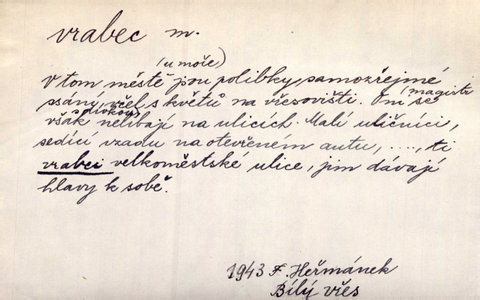 vrabec m.
(u moře)
V tom městě jsou polibky samozřejmé
psány, včel s květů na vřesovišti. Oni se (magistři
s dívkou)
však nelíbají na ulicích. Malí uličníci,
sedící vzadu na otevřeném autu, ...., ti
vrabci velkoměstské ulice, jim dávají
hlavy k sobě.
1943 F. Heřmánek
Bílý vřes